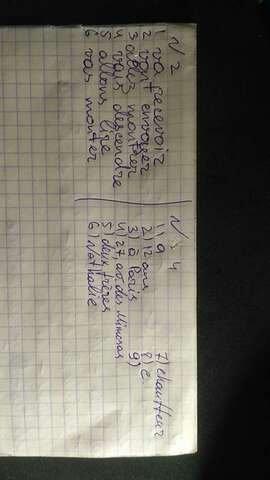 N 2
1 va recevoir
2 vont envoyer
3 allez montrer
4 vais descendre
5 allons lire
6 vas monter
N: 4
1) a
2) 12 ans
3) à Paris
4) 27, av. des Mimosas
5) deux frères
6) Nathalie
7) chauffeur
8) c.
9)